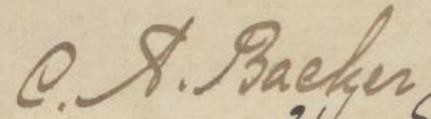 C. A. Backer